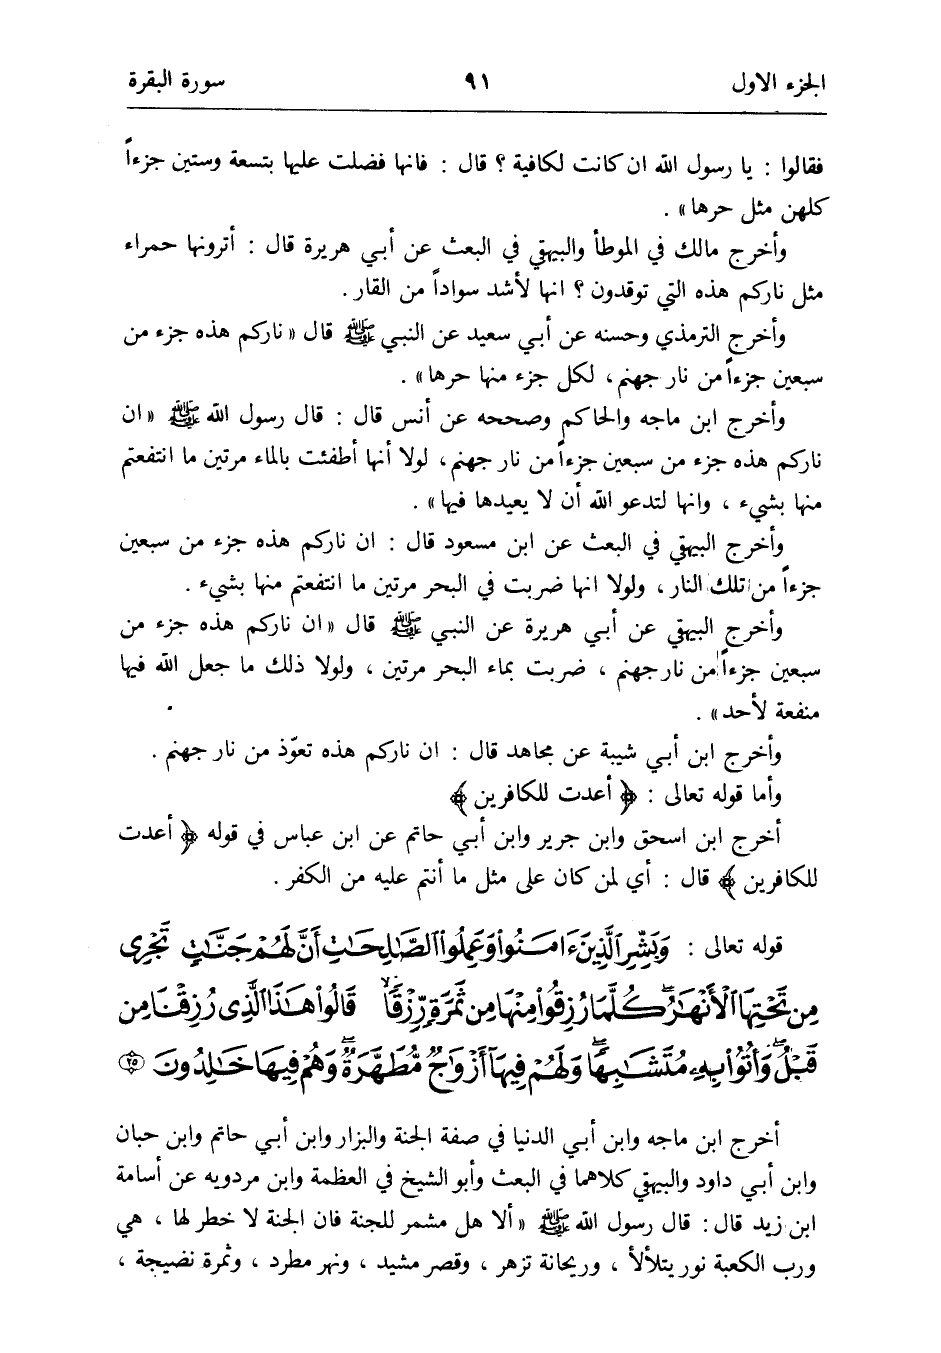 الجزء الاول ٩١ سورة البقرة
فقالوا : يا رسول الله ان كانت لكافية ؟ قال : فانها فضلت عليها بتسعة وستين جزءاً
كلهن مثل حرها » .
وأخرج مالك في الموطأ والبيهقي في البعث عن أبي هريرة قال : أترونها حمراء
مثل ناركم هذه التي توقدون ؟ انها لأشد سواداً من القار .
وأخرج الترمذي وحسنه عن أبي سعيد عن النبي ﷺ قال « ناركم هذه جزء من
سبعين جزءاً من نار جهنم ، لكل جزء منها حرها » .
وأخرج ابن ماجه والحاكم وصححه عن أنس قال : قال رسول الله ﷺ « ان
ناركم هذه جزء من سبعين جزءاً من نار جهنم ، لولا أنها أطفئت بالماء مرتين ما انتفعتم
منها بشيء ، وانها لتدعو الله أن لا يعيدها فيها » .
وأخرج البيهقي في البعث عن ابن مسعود قال : ان ناركم هذه جزء من سبعين
جزءاً من تلك النار ، ولولا انها ضربت في البحر مرتين ما انتفعتم منها بشيء .
وأخرج البيهقي عن أبي هريرة عن النبي ﷺ قال « ان ناركم هذه جزء من
سبعين جزءاً من نار جهنم ، ضربت بماء البحر مرتين ، ولولا ذلك ما جعل الله فيها
منفعة لأحد » .
وأخرج ابن أبي شيبة عن مجاهد قال : ان ناركم هذه تعوّذ من نار جهنم .
وأما قوله تعالى : ﴿ أعدت للكافرين ﴾
أخرج ابن اسحق وابن جرير وابن أبي حاتم عن ابن عباس في قوله ﴿ أعدت
للكافرين ﴾ قال : أي لمن كان على مثل ما أنتم عليه من الكفر .
قوله تعالى : وَبَشِّرِ الَّذِينَ ءَامَنُوا وَعَمِلُوا الصَّالِحَاتِ أَنَّ لَهُمْ جَنَّاتٍ تَجْرِى
مِن تَحْتِهَا الْأَنْهَارُ كُلَّمَا رُزِقُوا مِنْهَا مِن ثَمَرَةٍ رِّزْقًا قَالُوا هَاذَا الَّذِى رُزِقْنَا مِن
قَبْلُ وَأُتُوا بِهِ مُتَشَابِهًا وَلَهُمْ فِيهَا أَزْوَاجٌ مُّطَهَّرَةٌ وَهُمْ فِيهَا خَالِدُونَ ٢٥
أخرج ابن ماجه وابن أبي الدنيا في صفة الجنة والبزار وابن أبي حاتم وابن حبان
وابن أبي داود والبيهقي كلاهما في البعث وأبو الشيخ في العظمة وابن مردويه عن أسامة
ابن زيد قال : قال رسول الله ﷺ « ألا هل مشمر للجنة فان الجنة لا خطر لها ، هي
ورب الكعبة نور يتلألأ ، وريحانة تزهر ، وقصر مشيد ، ونهر مطرد ، وثمرة نضيجة ،